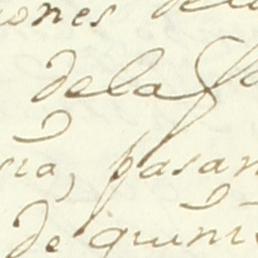 ones de
dela
ia, pasan
de quin